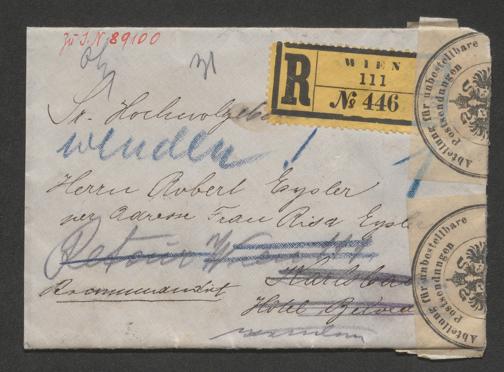 zu I.N. 89100
R
WIEN
111
No 446
Sr. Hochwolgeb
wenden!
Herrn Robert Eysler
per Adresse Frau Risa Eysler
Retour Wien
Karlsbad
Recommandirt
Hotel
Abteilung für unbestellbare Postsendungen
Abteilung für unbestellbare Postsendungen